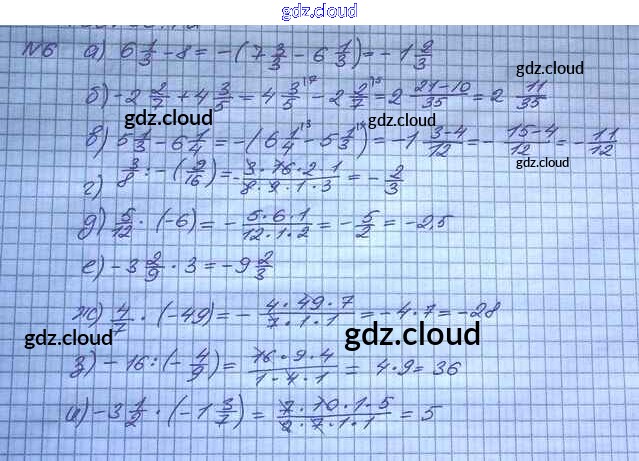 gdz.cloud
№6 а) 6 1/3 - 8 = -(7 3/3 - 6 1/3) = -1 2/3
gdz.cloud
б) -2 2/7 + 4 3/5 = 4 3/5 - 2 2/7 = 2 21-10/35 = 2 11/35
gdz.cloud gdz.cloud
в) 5 1/3 - 6 1/4 = -(6 1/4 - 5 1/3) = -1 3-4/12 = - 15-4/12 = - 11/12
г) 3/8 : -(9/16) = - 3·16·2·1/8·9·1·3 = - 2/3
д) 5/12 · (-6) = - 5·6·1/12·1·2 = - 5/2 = -2,5
е) -3 2/9 · 3 = -9 2/3
ж) 4/7 · (-49) = - 4·49·7/7·1·1 = -4·7 = -28
gdz.cloud gdz.cloud gdz.cloud
з) -16 : (- 4/9) = 16·9·4/1·4·1 = 4·9 = 36
и) -3 1/2 · (-1 3/7) = 7·10·1·5/2·7·1·1 = 5
gdz.cloud